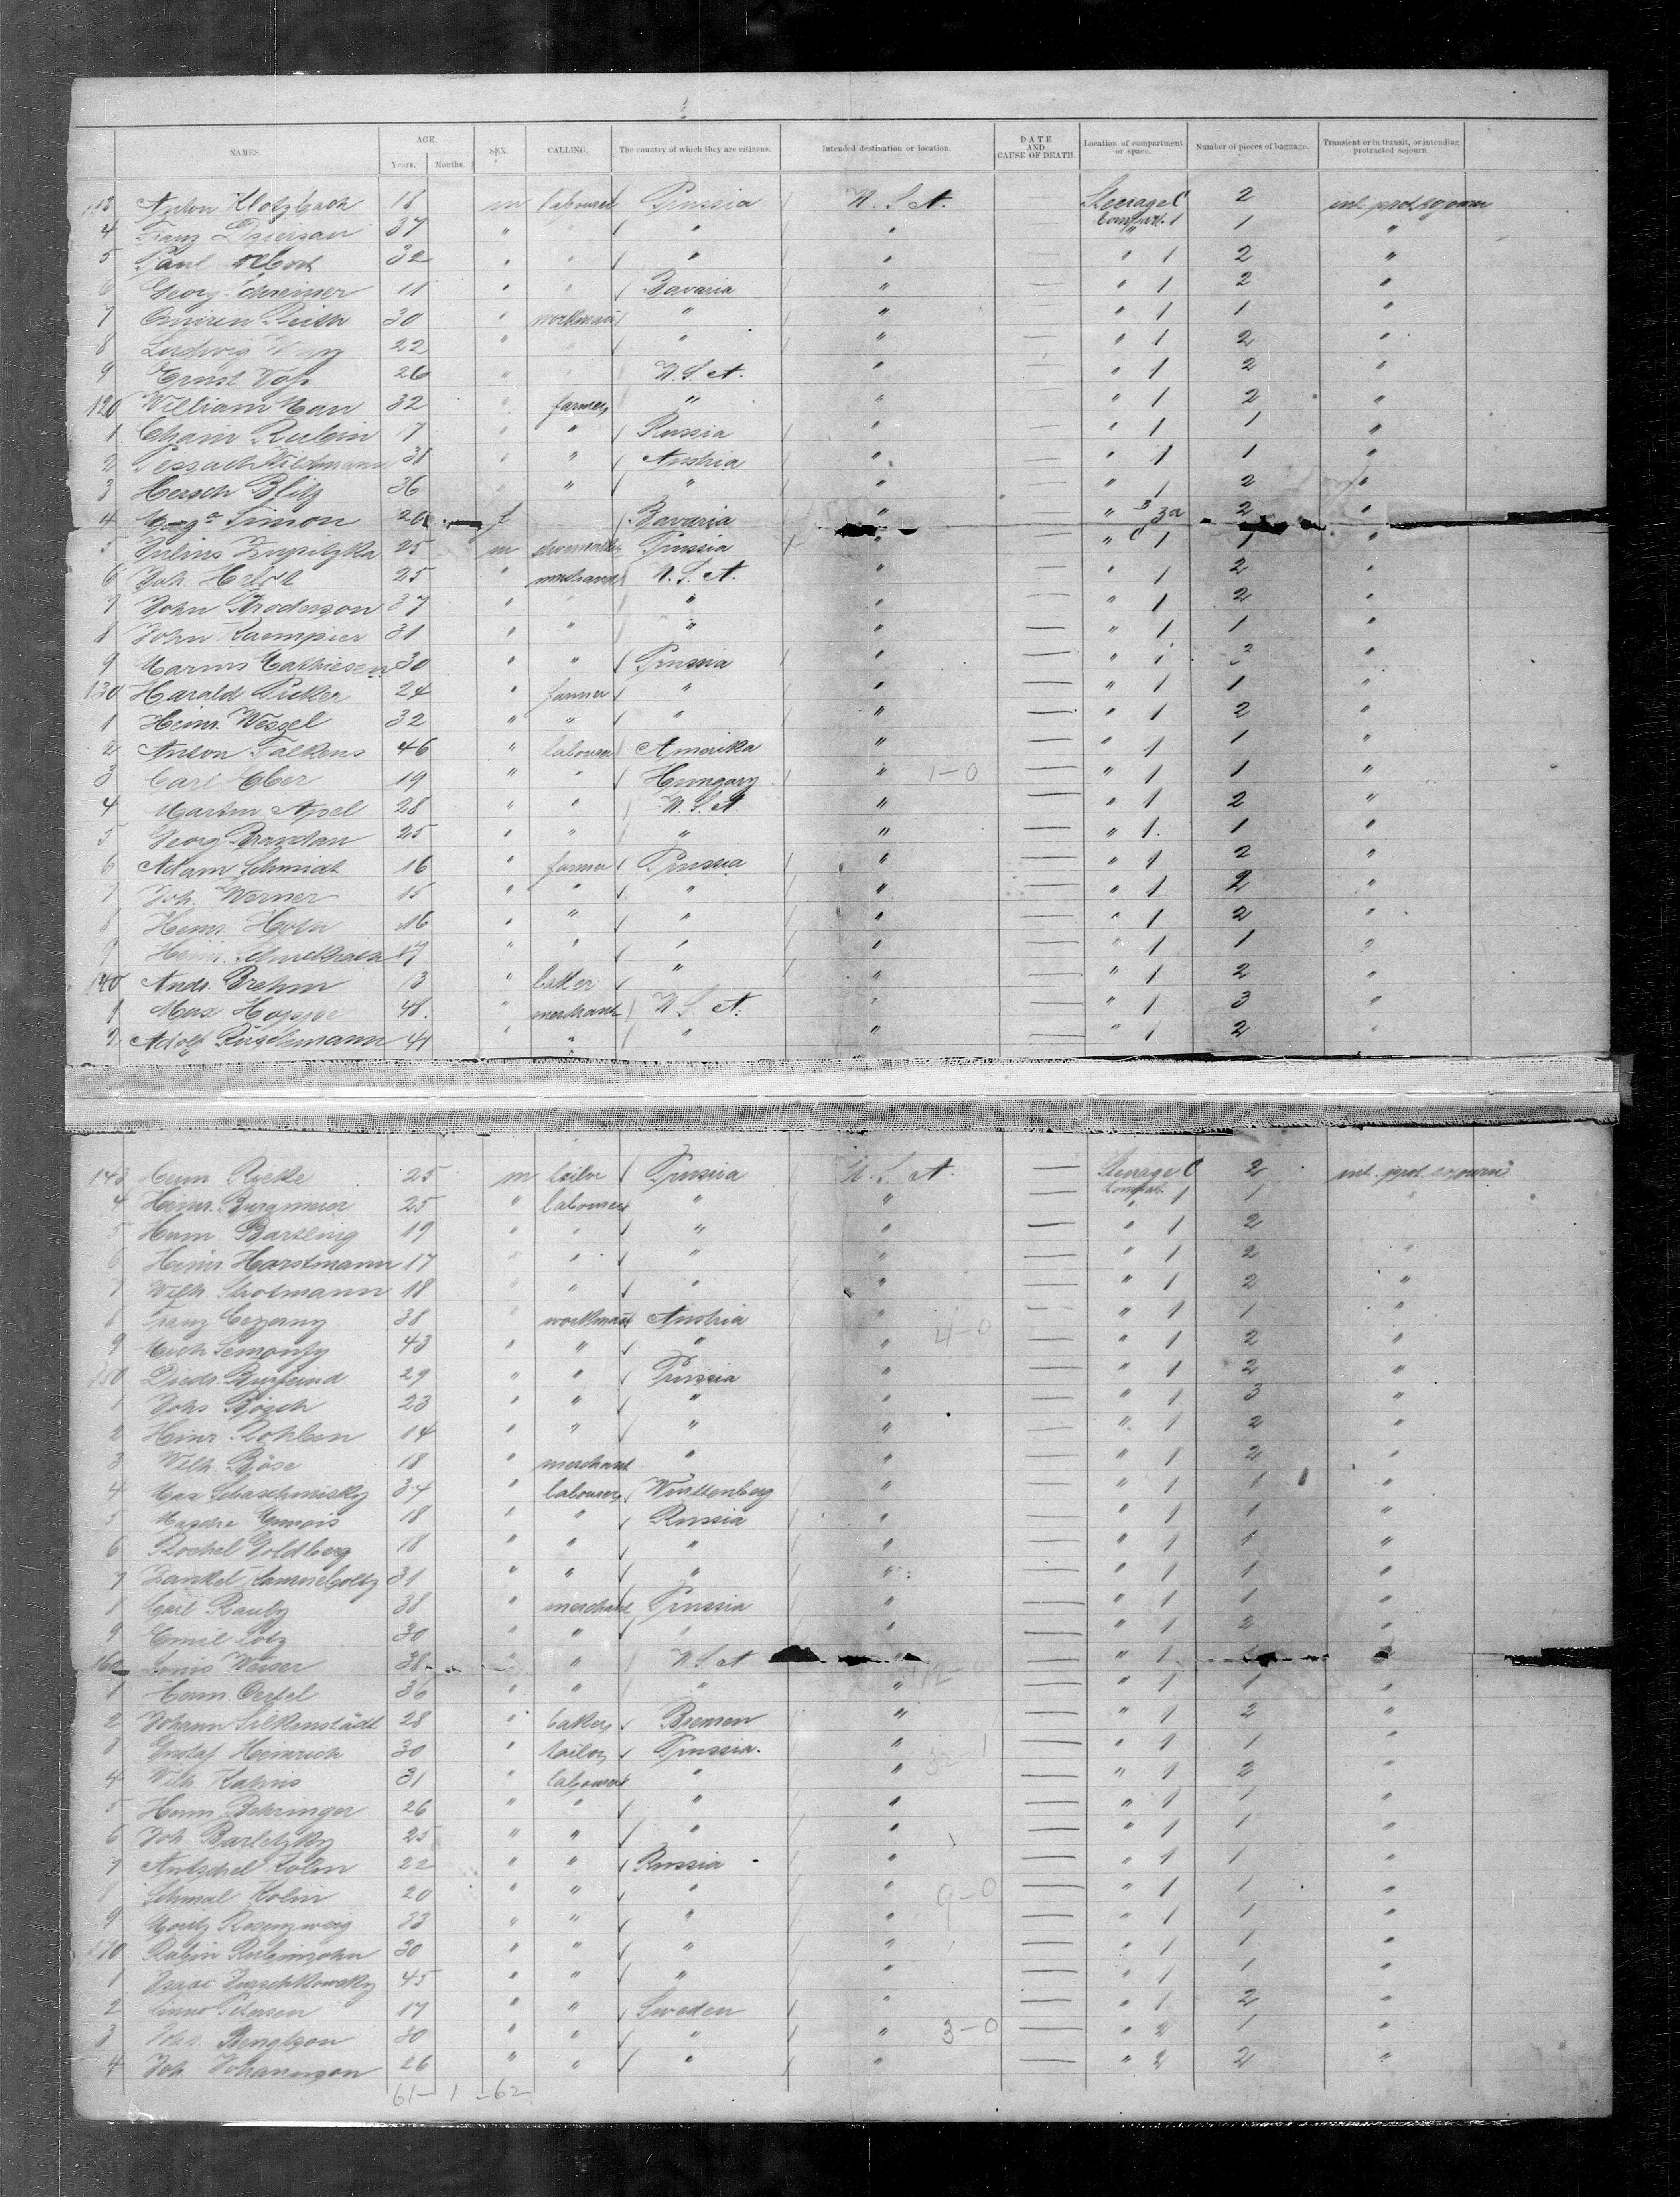 NAMES. AGE. Years. Months. SEX. CALLING. The country of which they are citizens. Intended destination or location. DATE AND CAUSE OF DEATH. Location of compartment or space. Number of pieces of baggage. Transient or in transit, or intending protracted sojourn.
Anton Klotzbach 18 m labourer Prussia U.S.A. Steerage C Compart. 1 2 int. prot. sojourn
4 Franz 37 " " " " 1 1 "
5 Paul 32 " " " " " 1 2 "
6 Georg Schreiner 11 " " Bavaria " — " 1 2 "
7 30 " workman " " — " 1 1 "
8 Ludwig 22 " " " — " 1 2 "
9 Ernst Voss 26 " U.S.A. " — " 1 2 "
120 William 32 " farmer " " — " 1 2 "
1 Chaim Rubin 17 " " Russia " — " 1 1 "
2 Pessach 38 " " Austria " — " 1 1 "
3 Hersch Blitz 36 " " " " — " 1 2 "
4 Simon 20 f Bavaria " " 3 3a 2 "
5 Julius Zupitzka 25 m shoemaker Prussia " " C 1 1 "
6 Joh. 25 " merchant U.S.A. " — " 1 2 "
7 John Broderson 37 " " " " — " 1 2 "
8 John Kaempfer 31 " " " " — " 1 1 "
9 Harms Mathiesen 30 " " Prussia " — " 1 2 "
130 Harald 24 " farmer " " — " 1 1 "
1 Heinr. Wessel 32 " " " " — " 1 2 "
2 Anton Falkens 46 " labourer Amerika " — " 1 1 "
3 Carl Eber 19 " " Hungary " 1-0 — " 1 1 "
4 Martin Apel 28 " " U.S.A. " — " 1 2 "
5 Georg Brandau 25 " " " " — " 1 1 "
6 Adam Schmidt 16 " farmer Prussia " — " 1 2 "
7 Joh. Werner 15 " " " " — " 1 2 "
8 Heinr. 16 " " " " — " 1 2 "
9 Heinr. 17 " " " " — " 1 1 "
140 Andr. Brehm 13 " baker " " — " 1 2 "
1 Max Hoppe 48 " merchant U.S.A. " — " 1 3 "
2 Adolf Rüschmann 41 " " " " — " 1 2 "
143 Herm. 25 m tailor Prussia U.S.A. — Steerage C Compart. 1 2 int. prot. sojourn
4 Heinr. Burgmeier 25 " labourer " " — " 1 1 "
5 Herm. Bartling 19 " " " " — " 1 2
6 Heinr. Horstmann 17 " " " " — " 1 2 "
7 Wilh. 18 " " " " — " 1 2 "
8 Franz Czerny 38 " workman Austria " 4-0 — " 1 1 "
9 43 " " " " — " 1 2 "
150 Diedr. 29 " " Prussia " — " 1 2 "
1 Johs Bösch 23 " " " " — " 1 3 "
2 Hinr. 14 " " " " — " 1 2 "
3 Wilh. Böse 18 " merchant " " — " 1 2 "
4 Max 34 " labourer Württenberg " — " 1 1 "
5 18 " " Russia " — " 1 1 "
6 Rochel Goldberg 18 " " " " — " 1 1 "
7 Jankel 31 " " " " — " 1 1 "
8 Carl 38 " merchant Prussia " — " 1 1 "
9 Emil Lotz 30 " " " " — " 1 2 "
160 Louis Weiser 38 " " U.S.A " — " 1 "
1 Herm. Oertel 36 " " " " — " 1 1 "
2 Johann Silkenstädt 28 " baker Bremen " — " 1 2 "
3 Gustaf Heinrich 30 " tailor Prussia. " 32 1 — " 1 1 "
4 Wilh. Kahns 31 " labourer " " — " 1 2 "
5 Herm. Behringer 26 " " " " — " 1 1 "
6 Joh. Barletzky 25 " " " " — " 1 1 "
7 Antschel Kolin 22 " " Russia " — " 1 1 "
8 Schmal Kolin 20 " " " " 9-0 — " 1 1 "
9 Moritz Rosenzweig 33 " " " " — " 1 1 "
170 Rabin Rubinsohn 30 " " " " — " 1 1 "
1 Isaac 45 " " " " — " 1 1 "
2 Petersen 17 " " Sweden " — " 1 2 "
3 Bengtson 30 " " " " 3-0 — " 2 1 "
4 Joh. Johannson 26 " " " " — " 2 2 "
61- 1 -62